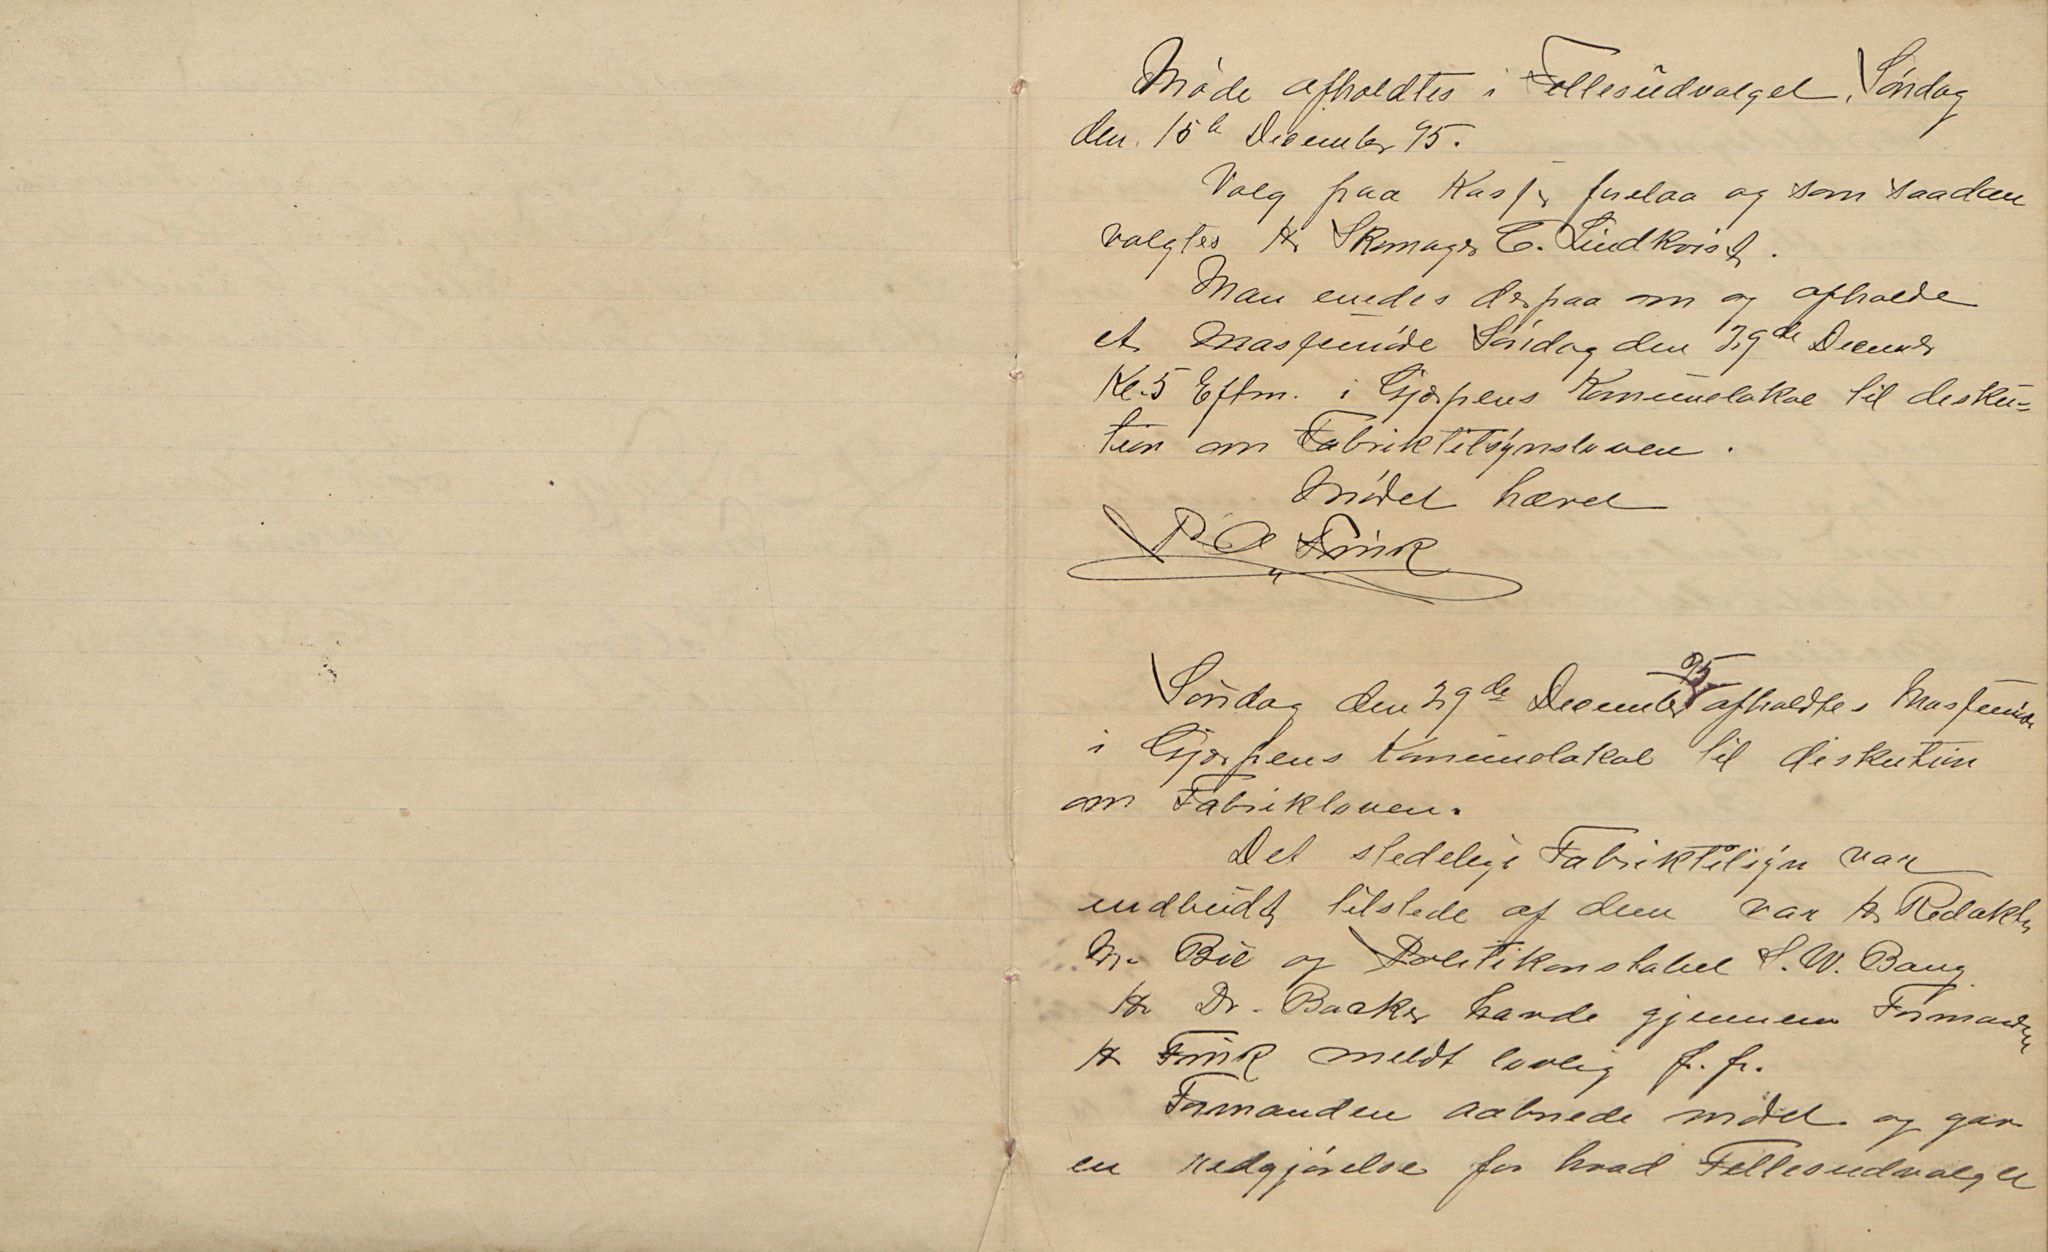 Møde afholdtes i Fellesudvalget, Søndag
den 15de December 95.
Valg paa Kasse forelaa og som saadan
valgtes Hr Skomager C. Lindkvist.
Man enedes derpaa om og afholde
et Massemøde Søndag den 29de Decemb
Kl. 5 Eftm. i Gjerpens Komunelokal til disku=
tion om Fabriktilsynsloven.
Mødet hævet
P. A. Frink
Søndag den 29de December 95 afholdtes Massemøde
i Gjerpens Komunelokal til diskution
om Fabrikloven.
Det stedelige Fabriktilsyn var
indbudt tilstede af dem var Hr Redaktør
M. Bie og Politikonstabel S. W. Bang
Hr Dr. Backer havde gjennem Formanden
Hr Frink meldt lovlig f. f.
Formanden aabnede mødet og gav
en redgjørelse for hvad Fellesudvalget